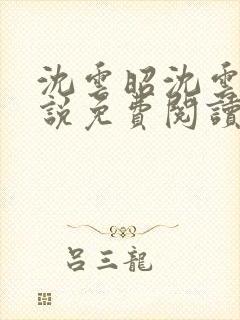 沈雲昭沈雲
說免費閱讀
呂三龍